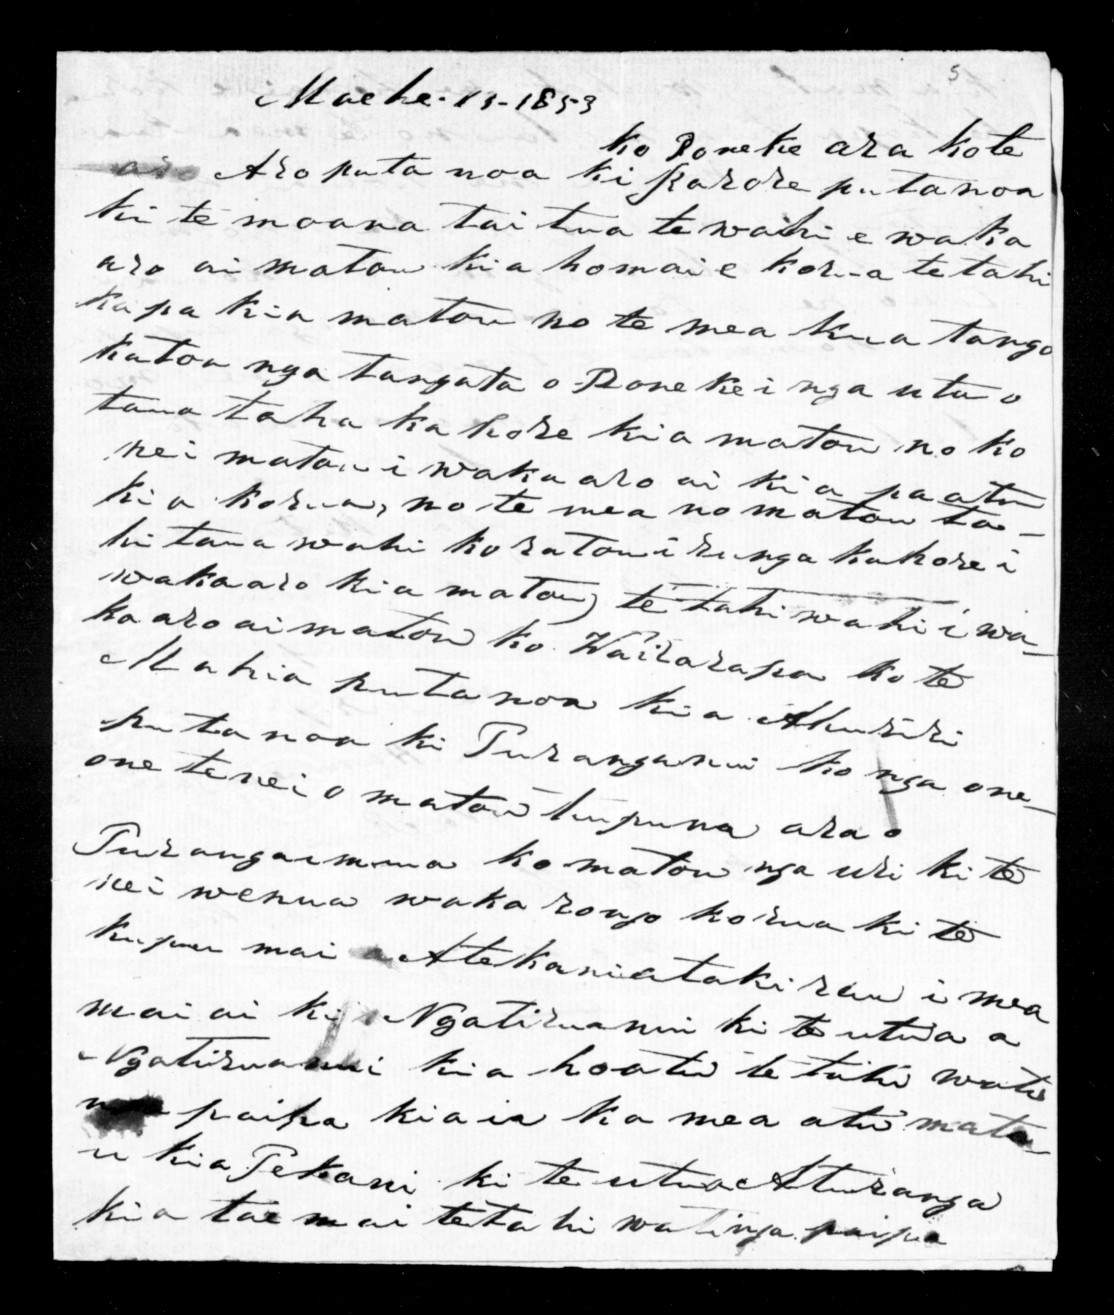 5
Maehe. 13-1853
ko Poneke ara ko te
aro Aro puta noa ki Karore puta noa
ki te moana tai tua te wahi e waka
aro ai matou kia homai e korua te tahi
kapa kia matou no te mea kua tango
katou nga tangata o Poneke i nga utu o
taua taha kahore kia matou no ko
nei matou i wakaaro ai kia pa atu
kia korua, no te mea no matou ta-
hi taua wahi ko ratou i runga kahore i
wakaaro kia matou, te tahi wahi i wa-
kaaro ai matou ko Wairarapa ko te
Mahia puta noa kia Ahuriri
puta noa ki Turanganui ko nga one-
one tenei o matou tupuna ara o
Turangaimua ko matou nga uri ki te
nei wenua wakarongo korua ki te
kupu mai Atekaniatakirau, i mea
mai ai ki Ngatiruanui ki te utua a
Ngatiruanui kia hoatu te tahi watu
paipa kia ia ka mea atu mato
u kia Te Kani ki te utua Aturanga
kia tae mai te tahi watinga paipa